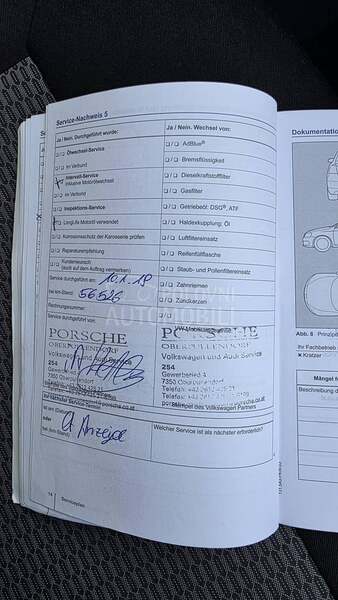 Service-Nachweis 5
Ja / Nein. Durchgeführt wurde:
Ölwechsel-Service
im Verbund
Intervall-Service
inklusive Motorölwechsel
im Verbund
Inspektions-Service
Longlife Motoröl verwendet
Korrosionsschutz der Karosserie prüfen
Reparaturempfehlung
Kundenwunsch
(auch auf dem Auftrag vermerken)
Service durchgeführt am: 10.1.19
bei km-Stand: 56526
Rechnungsnummer:
Service durchgeführt von:
PORSCHE
OBERPULLENDORF
Volkswagen und Audi Service
254
7350 Oberpullendorf
Ihr nächster Service-Termin:
ist am (Datum)
oder
bei (km-Stand)
lt Anzeige
Ja / Nein. Wechsel von:
AdBlue®
Bremsflüssigkeit
Dieselkraftstofffilter
Gasfilter
Getriebeöl: DSG®, ATF
Haldexkupplung: Öl
Luftfiltereinsatz
Reifenfüllflasche
Staub- und Pollenfiltereinsatz
Zahnriemen
Zündkerzen
PORSCHE
OBERPULLENDORF
Volkswagen und Audi Service
254
Gewerberied 4
7350 Oberpullendorf
Stempel des Volkswagen Partners
Welcher Service ist als nächster erforderlich?
14
Serviceplan
Dokumentatio
Abb. 5
Ihr Fachbetrieb
Kratzer
Mängel f
Beschreibung d
AUTOMOBILE